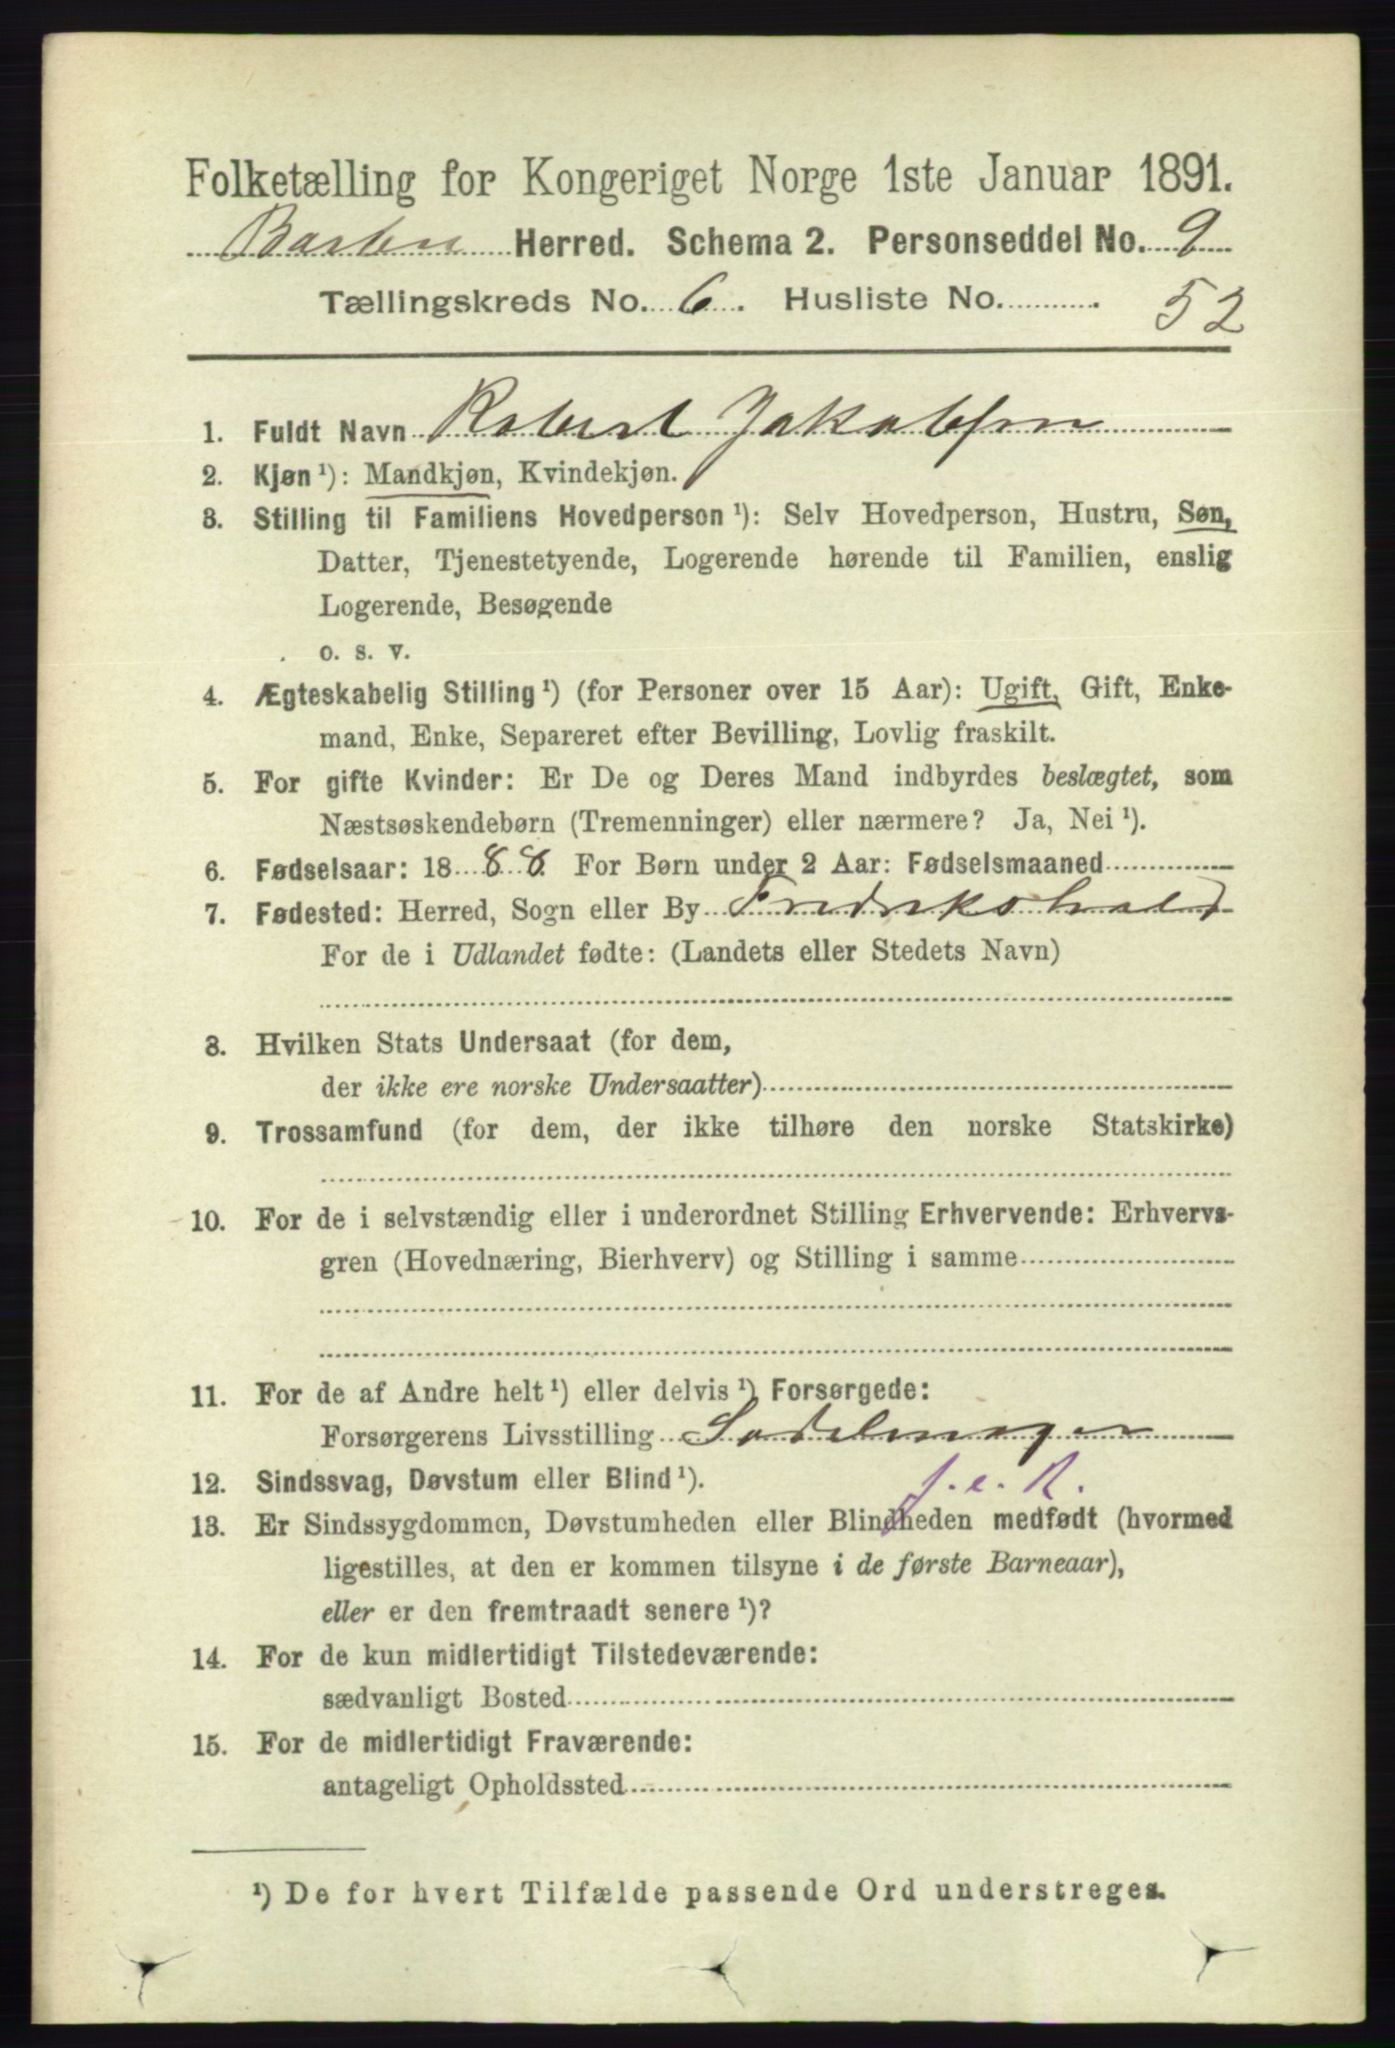 Folketælling for Kongeriget Norge 1ste Januar 1891.
Barbu Herred. Schema 2. Personseddel No. 9
Tællingskreds No. 6. Husliste No. .
52
1. Fuldt Navn Robert Jakobsen
2. Kjøn ¹): Mandkjøn, Kvindekjøn.
3. Stilling til Familiens Hovedperson ¹): Selv Hovedperson, Hustru, Søn,
Datter, Tjenestetyende, Logerende hørende til Familien, enslig
Logerende, Besøgende
o. s. v.
4. Ægteskabelig Stilling ¹) (for Personer over 15 Aar): Ugift, Gift, Enke-
mand, Enke, Separeret efter Bevilling, Lovlig fraskilt.
5. For gifte Kvinder: Er De og Deres Mand indbyrdes beslægtet, som
Næstsøskendebørn (Tremenninger) eller nærmere? Ja, Nei ¹).
6. Fødselsaar: 1888. For Børn under 2 Aar: Fødselsmaaned
7. Fødested: Herred, Sogn eller By Fredrikshald
For de i Udlandet fødte: (Landets eller Stedets Navn)
8. Hvilken Stats Undersaat (for dem,
der ikke ere norske Undersaatter)
9. Trossamfund (for dem, der ikke tilhøre den norske Statskirke)
10. For de i selvstændig eller i underordnet Stilling Erhvervende: Erhvervs-
gren (Hovednæring, Bierhverv) og Stilling i samme
11. For de af Andre helt ¹) eller delvis ¹) Forsørgede:
Forsørgerens Livsstilling Sadelmager
f.e.R.
12. Sindssvag, Døvstum eller Blind ¹).
13. Er Sindssygdommen, Døvstumheden eller Blindheden medfødt (hvormed
ligestilles, at den er kommen tilsyne i de første Barneaar),
eller er den fremtraadt senere ¹)?
14. For de kun midlertidigt Tilstedeværende:
sædvanligt Bosted
15. For de midlertidigt Fraværende:
antageligt Opholdssted
¹) De for hvert Tilfælde passende Ord understreges.